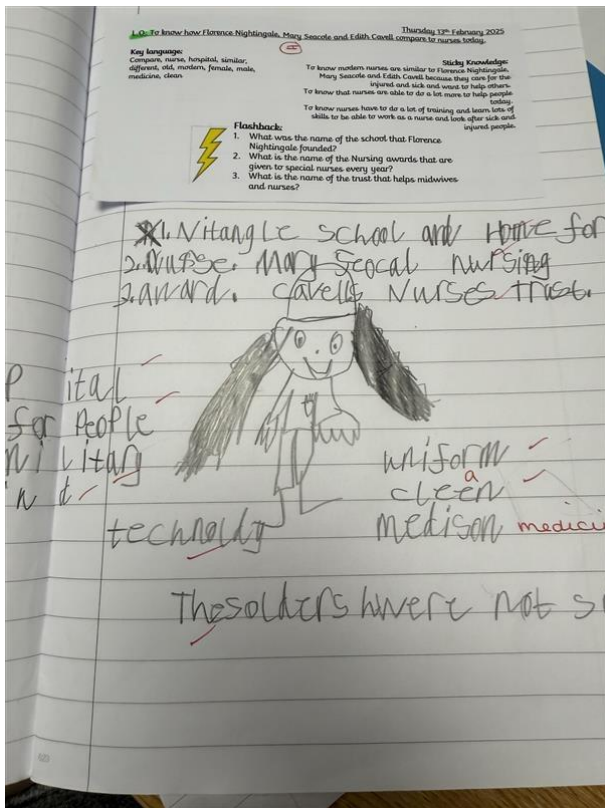 L.O: To know how Florence Nightingale, Mary Seacole and Edith Cavell compare to nurses today.
Thursday 13th February 2025
Key language:
Compare, nurse, hospital, similar,
different, old, modern, female, male,
medicine, clean
Sticky Knowledge:
To know modern nurses are similar to Florence Nightingale,
Mary Seacole and Edith Cavell because they care for the
injured and sick and want to help others.
To know that nurses are able to do a lot more to help people
today.
To know nurses have to do a lot of training and learn lots of
skills to be able to work as a nurse and look after sick and
injured people.
Flashback:
1. What was the name of the school that Florence
Nightingale founded?
2. What is the name of the Nursing awards that are
given to special nurses every year?
3. What is the name of the trust that helps midwives
and nurses?
1. Nitangle school and Home for
2. Nurse. Mary Seocal nursing
3. award. Cavells Nurses Trust.
P ital
for People
military
uniform
cleen
a
technoldy
medison medici
The solders were not s